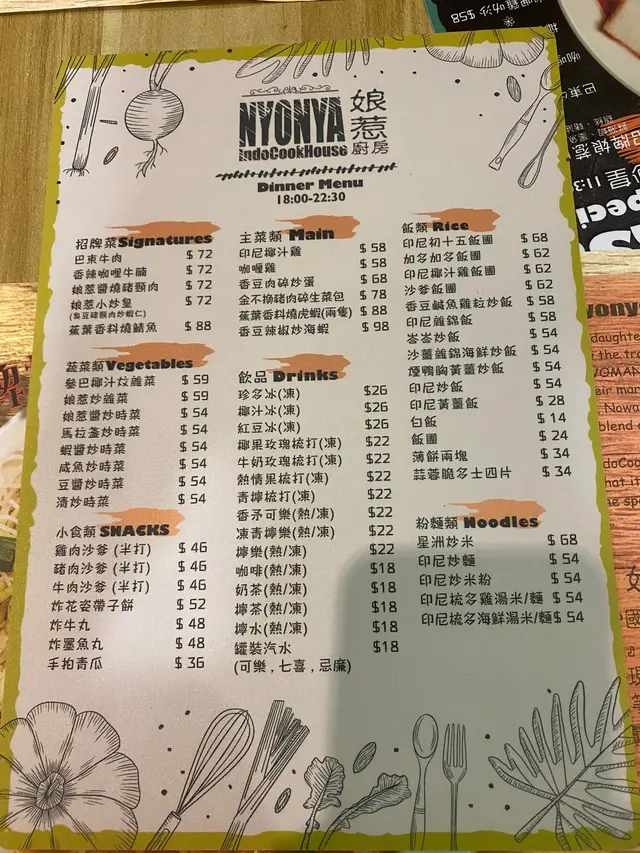 NYONYA 娘惹
IndoCookHouse 廚房
Dinner Menu
18:00-22:30
招牌菜Signatures
巴東牛肉 $ 72
香辣咖哩牛腩 $ 72
娘惹醬燒豬頸肉 $ 72
娘惹小炒皇 $ 72
(臭豆豬頸肉炒蝦仁)
蕉葉香料燒鯖魚 $ 88
蔬菜類Vegetables
參巴椰汁炆雜菜 $ 59
娘惹炒雜菜 $ 59
娘惹醬炒時菜 $ 54
馬拉盞炒時菜 $ 54
蝦醬炒時菜 $ 54
咸魚炒時菜 $ 54
豆醬炒時菜 $ 54
清炒時菜 $ 54
小食類 SNACKS
雞肉沙爹 (半打) $ 46
豬肉沙爹 (半打) $ 46
牛肉沙爹 (半打) $ 46
炸花姿帶子餅 $ 52
炸牛丸 $ 48
炸墨魚丸 $ 48
手拍青瓜 $ 36
主菜類 Main
印尼椰汁雞 $ 58
咖喱雞 $ 58
香豆肉碎炒蛋 $ 68
金不換豬肉碎生菜包 $ 78
蕉葉香料燒虎蝦(兩隻) $ 88
香豆辣椒炒海蝦 $ 98
飲品 Drinks
珍多冰(凍) $26
椰汁冰(凍) $26
紅豆冰(凍) $26
椰果玫瑰梳打(凍) $22
牛奶玫瑰梳打(凍) $22
熱情果梳打(凍) $22
青檸梳打(凍) $22
香矛可樂(熱/凍) $22
凍青檸梳打(熱/凍) $22
檸樂(熱/凍) $22
咖啡(熱/凍) $18
奶茶(熱/凍) $18
檸茶(熱/凍) $18
檸水(熱/凍) $18
罐裝汽水 $18
(可樂 , 七喜 , 忌廉)
飯類 Rice
印尼初十五飯團 $ 68
加多加多飯團 $ 62
印尼椰汁雞飯團 $ 62
沙爹飯團 $ 62
香豆鹹魚雞粒炒飯 $ 58
印尼雜錦飯 $ 58
崙崙炒飯 $ 54
沙薑雜錦海鮮炒飯 $ 54
煙鴨胸黃薑炒飯 $ 54
印尼炒飯 $ 54
印尼黃薑飯 $ 28
白飯 $ 14
飯團 $ 24
薄餅兩塊 $ 34
蒜蓉脆多士四片 $ 34
粉麵類 Noodles
星洲炒米 $ 68
印尼炒麵 $ 54
印尼炒米粉 $ 54
印尼梳多雞湯米/麵 $ 54
印尼梳多海鮮湯米/麵 $ 54